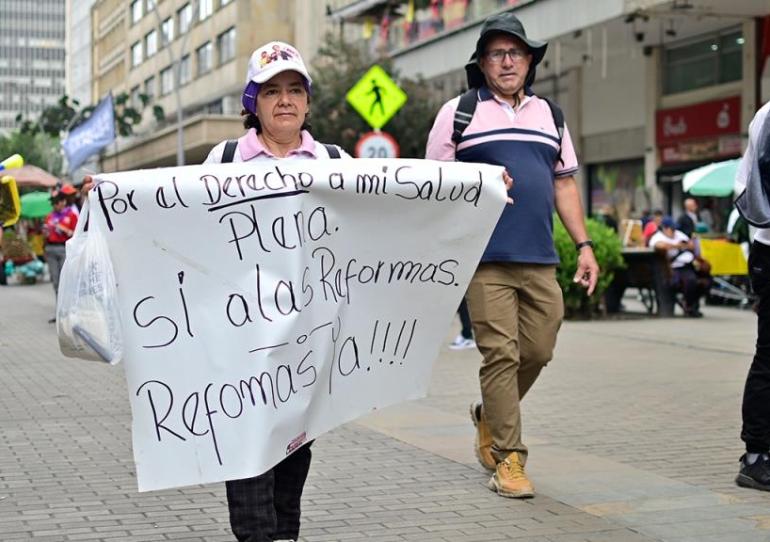 Por el Derecho a mi Salud
Plena.
Si a las Reformas.
Refomas Ya!!!!
20